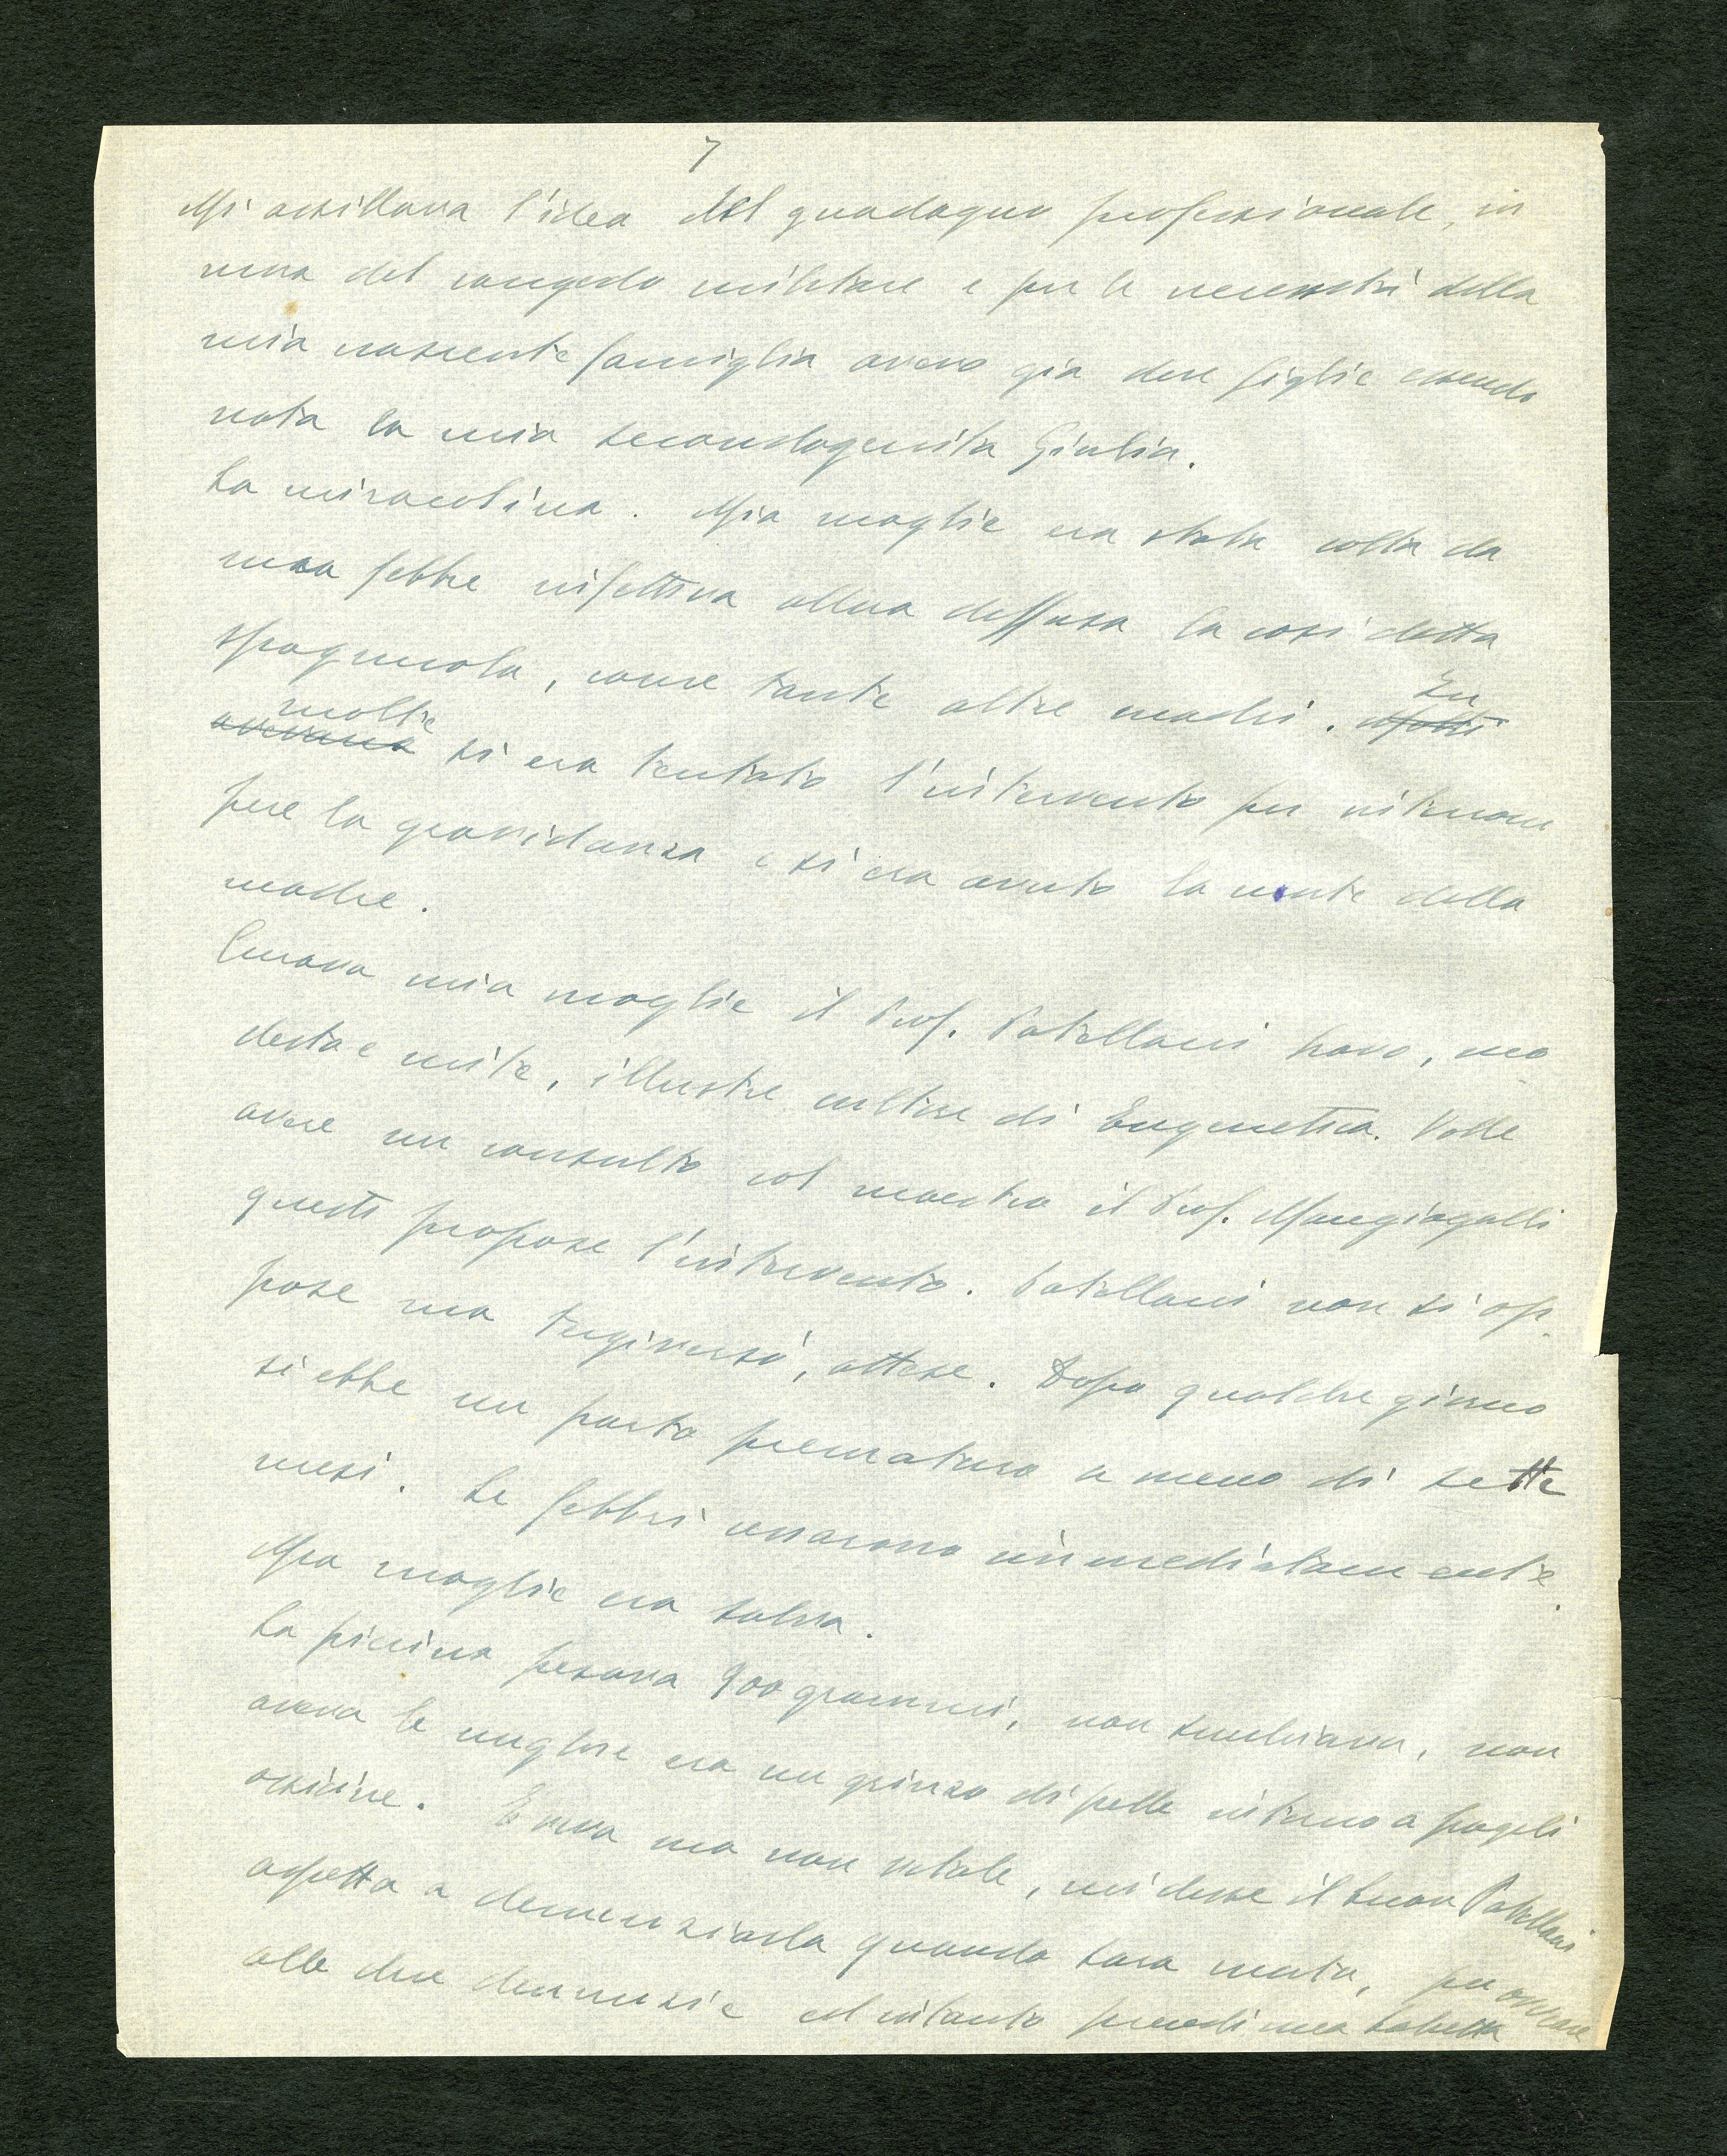 7
Mi assillava l'idea del guadagno professionale, in
vista del congedo militare e per le necessità della
mia nascente famiglia avevo già due figlie essendo
nata la mia secondogenita Giulia.
La miracolina. Mia moglie era stata colta da
una febbre infettiva allora diffusa la cosi detta
spagnuola, come tante altre madri. In
molte si era tentato l'intervento per interrom
pere la gravidanza e si era avuto la morte della
madre.
Curava mia moglie il Prof. Patellani bravo, mo
desto e mite, illustre cultore di Eugenetica. Volle
avere un consulto col maestro il Prof. Mangiagalli
questi propose l'intervento. Patellani non si op
pose ma tergiversò, attese. Dopo qualche giorno
si ebbe un parto prematuro a meno di sette
mesi. Le febbri cessarono immediatamente.
Mia moglie era salva.
La piccina pesava 900 grammi, non sembrava, non
aveva le unghie era un grinzo di pelle intorno a fragili
ossicine. È viva ma non vitale, mi disse il buon Patellani
aspetta a denunziarla quando sarà morta, per
alle due denunzie ed intanto prendi una